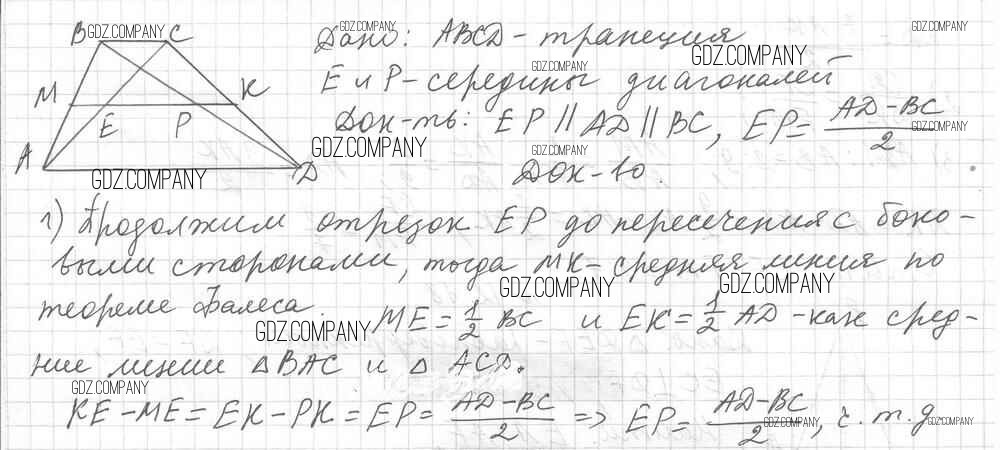 B GDZ.COMPANY C
M K
E P
A D
GDZ.COMPANY
Дано: ABCD - трапеция
E и P - середины диагоналей
Док-ть: EP || AD || BC, EP = AD-BC / 2
Док-во.
1) Продолжим отрезок EP до пересечения с боко-
выми сторонами, тогда MK - средняя линия по
теореме Фалеса. ME = 1/2 BC и EK = 1/2 AD - как сред-
ние линии △BAC и △ACD.
KE - ME = EK - PK = EP = AD-BC / 2 => EP = AD-BC / 2, ч.т.д.
GDZ.COMPANY
GDZ.COMPANY
GDZ.COMPANY
GDZ.COMPANY
GDZ.COMPANY
GDZ.COMPANY
GDZ.COMPANY
GDZ.COMPANY
GDZ.COMPANY
GDZ.COMPANY
GDZ.COMPANY
GDZ.COMPANY
GDZ.COMPANY